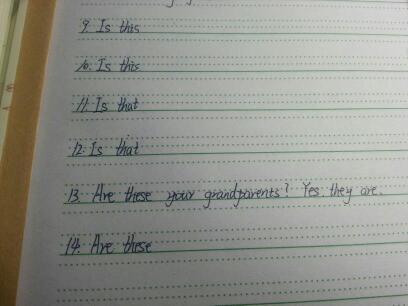 9. Is this
10. Is this
11. Is that
12. Is that
13. Are these your grandparents? Yes, they are.
14. Are these